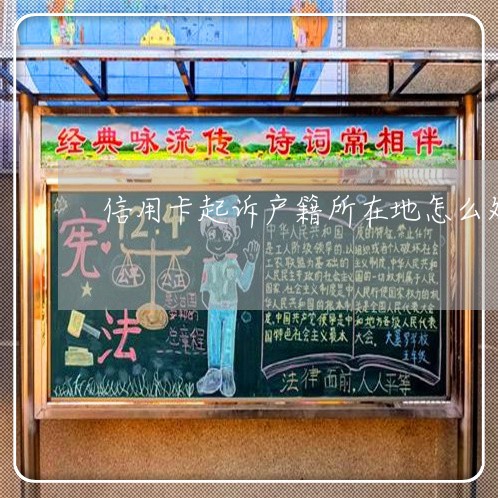 经典咏流传 诗词常相伴
信用卡起诉户籍所在地怎么处
宪法
12.4
公平
公正
总章程
中华人民共和国
是工人阶级领导的,以
工农联盟为基础的
人民民主专政的社会主义
国家,社会主义制度是中
华人民共和国的根本制
度,中国共产党领导是中
国特色社会主义最本
质的特征,禁止任何
组织或者个人破坏社会
主义制度,中华人民共和
国的一切权利属于人民,
人民行使国家权力的机
关是全国人民代表大会
和地方各级人民代表
大会。
五年级
法律面前,人人平等